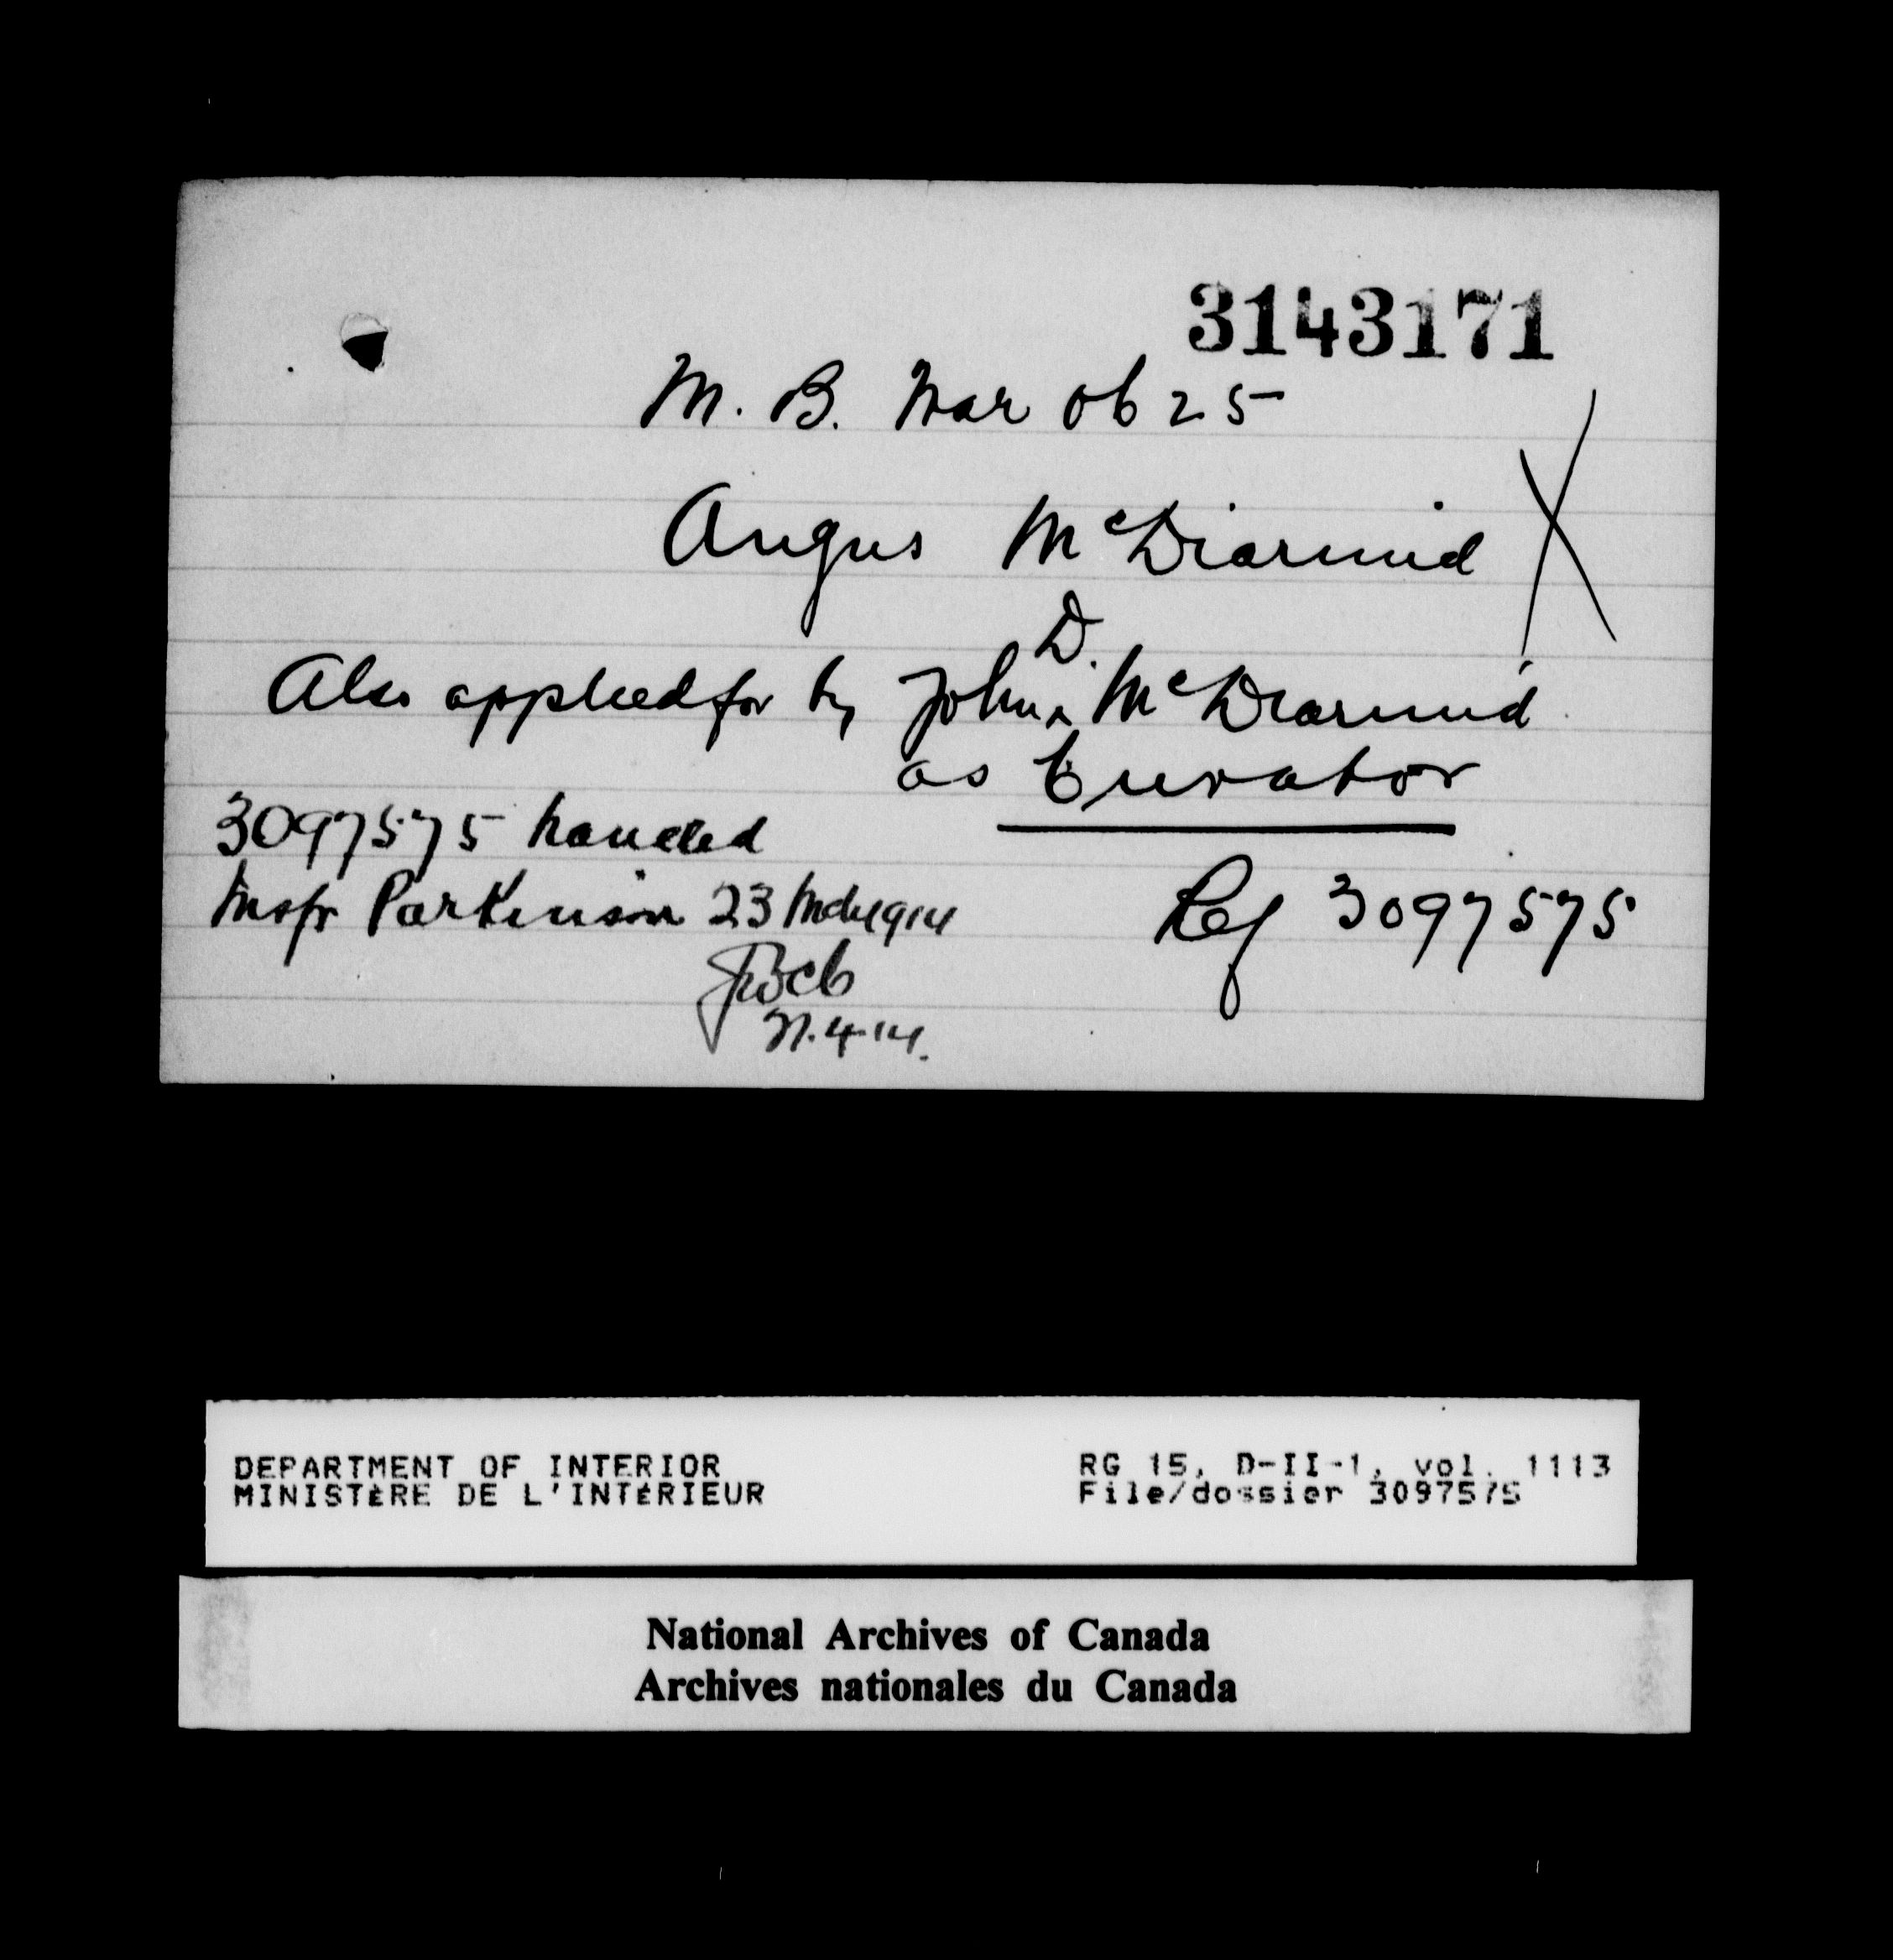 3143171
M. B. War ob 25
Angus McDiarmid X
D.
Also applied for by John ^ McDiarmid
as Curator
3097575 handed
Insfr Parkinson 23 1914
Ref 3097575
4.14.
DEPARTMENT OF INTERIOR
MINISTÈRE DE L'INTÉRIEUR
RG 15, D-II-1, vol. 1113
File/dossier 3097575
National Archives of Canada
Archives nationales du Canada